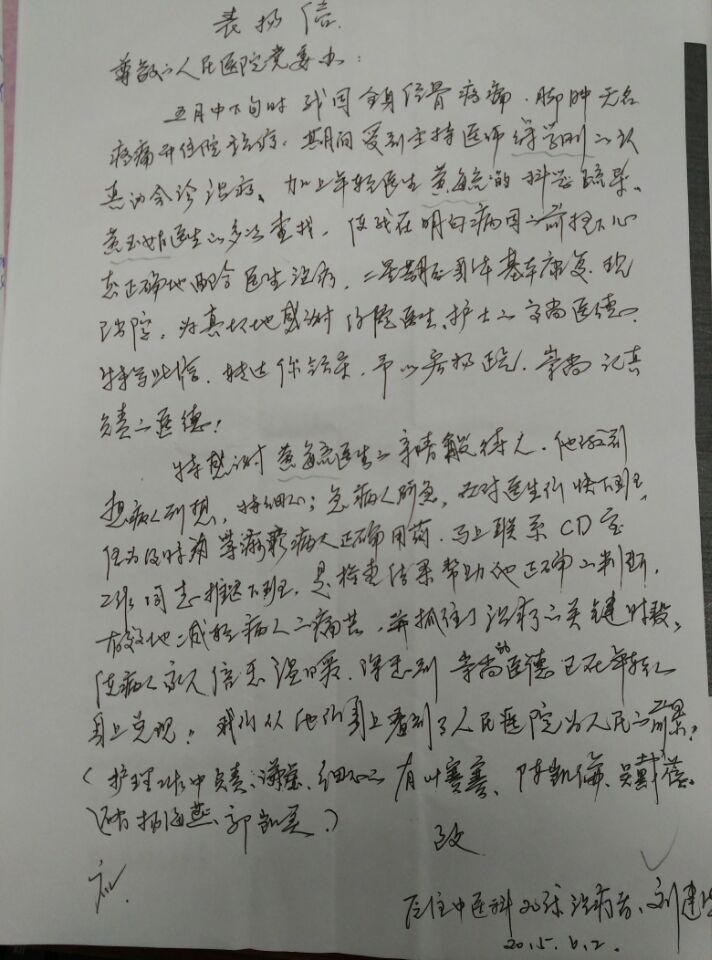 表扬信
尊敬的人民医院党委办:
五月中下旬时 我因全身经骨疼痛、脚肿无名
疼痛开住院治疗。期间受到主持医师 的认
真的会诊治疗。加上年轻医生黄毓 的科学
黄 医生的多次查找,使我在明白病因的前提下心
态正确地配合医生治疗,二星期后身体基本康复。现
出院,为真切地感谢 院医生、护士的高尚医德。
特写此信,转达你领导,予以表扬 崇尚认真
负责的医德!
特感谢黄毓 医生的亲情般待人。他做到
想病人所想,特细心;急病人所急,在对医生们快下班,
但为及时 病人正确用药,马上联系CD室
工作同志推迟下班,是检查结果帮助他正确的判断,
有效地减轻病人的痛苦,并抓住了治疗的关键时段。
使病人家人倍感温暖,深感到崇尚的医德已在年轻人
身上兑现!我们从他们身上看到了人民医院为人民的前景!
(护理工作中负责、谦 、细心的有叶赛赛、陈凯 、吴戴蓓
还有杨海燕、郭凯 。)
致
礼
后住中医科 治病者、刘建
2015.6.2.